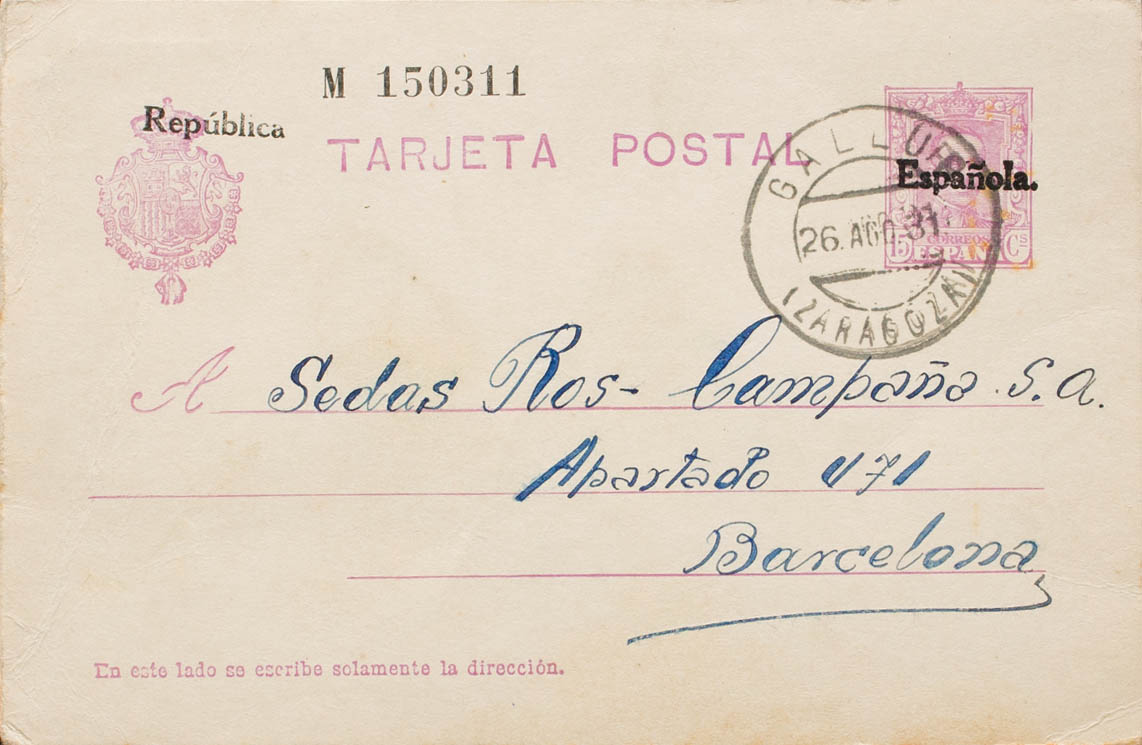 M 150311
República
TARJETA POSTAL
Española.
15 CORREOS Cs
ESPAÑA
GALLUR
26. AGO. 31
(ZARAGOZA)
A Sedas Ros- Campaña S.A.
Apartado 471
Barcelona
En este lado se escribe solamente la dirección.